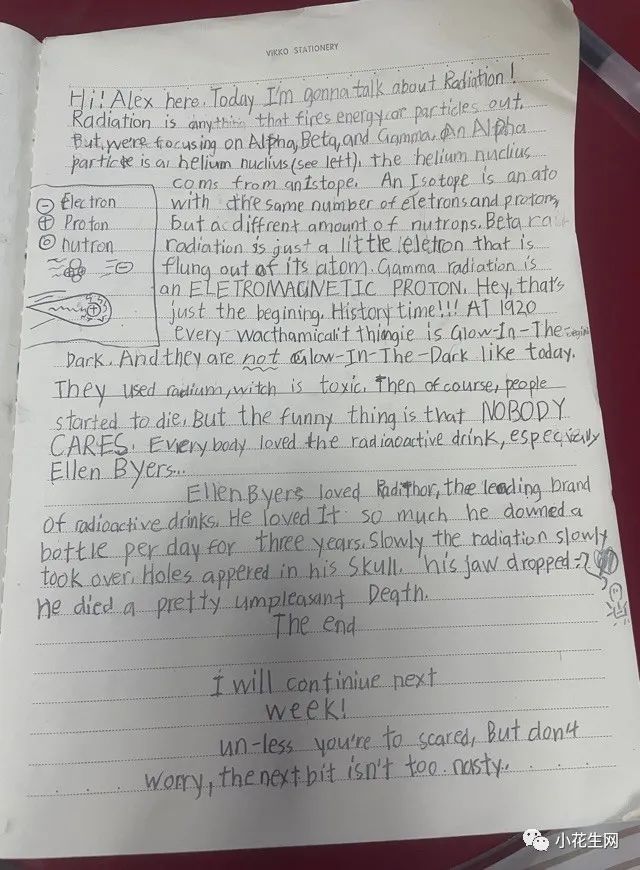 VIKKO STATIONERY
Hi! Alex here. Today I'm gonna talk about Radiation!
Radiation is anything that fires energy or particles out.
But we're focusing on Alpha, Beta, and Gamma. An Alpha
particle is a helium nuclius (see left), the helium nuclius
coms from an Istope. An Isotope is an ato
with the same number of eletrons and protons,
but a diffrent amount of nutrons. Beta
radiation is just a little eletron that is
flung out of its atom. Gamma radiation is
an ELETROMAGNETIC PROTON. Hey, that's
just the begining. History time!!! At 1920
every thingie is Glow-In-The-
Dark. And they are not Glow-In-The-Dark like today.
They used radium, witch is toxic. Then of course, people
started to die, But the funny thing is that NOBODY
CARES. Everybody loved the radiaoactive drink, especially
Ellen Byers...
Ellen Byers loved Radithor, the leading brand
of radioactive drinks. He loved It so much he downed a
bottle per day for three years. Slowly the radiation slowly
took over. Holes appered in his Skull, his jaw dropped
He died a pretty umpleasant Death.
The end
I will continiue next
week!
un-less you're to scared, But don't
worry, the next bit isn't too nasty..
Electron
Proton
nutron
小花生网